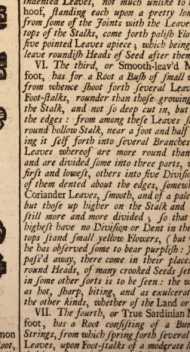 indented Leaves, not much unlike to
hoof, standing each upon a pretty long
from some of the Joints with the Leaves
tops of the Stalks, come forth polish Flo
five pointed Leaves apiece; which being
leave roundish Heads of Seed after them
VI. The third, or Smooth-leav'd
foot, has for a Root a Bush of small
from whence shoot forth several Leaves
Foot-stalks, rounder than those grown
the Stalk, and not so deep cut in, but
the edges: from among these Leaves
round hollow Stalk, near a foot and half
ing it self forth into several Branches
Leaves whereof are more round than
and are divided some into three parts,
first and lowest, others into five Divisions
of them dented about the edges, somewhat
Coriander Leaves, smooth, and of a pale
but those up higher on the Stalk and
still more and more divided; so that
highest have no Division or Dent in the
tops stand small yellow Flowers, (but
he has observed some to bear purplish:
pass'd away, there come in their places
round Heads, of many crooked Seeds set
in some other sorts is to be seen: the
as hot, sharp, biting, and as exulcerat
the other kinds, whether of the Land or
VII. The fourth, or True Sardinian
foot, has a Root consisting of a
Strings, from which spring forth several
Leaves, upon Foot-stalks of a moderate
mon
foot,